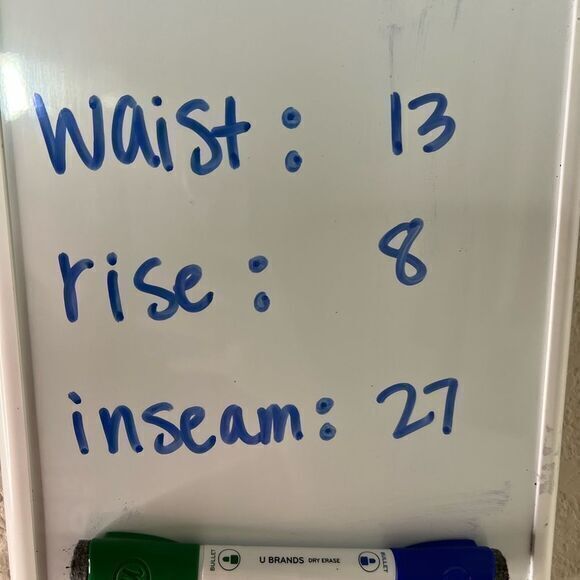 waist: 13
rise: 8
inseam: 27
BULLET U BRANDS DRY ERASE BULLET